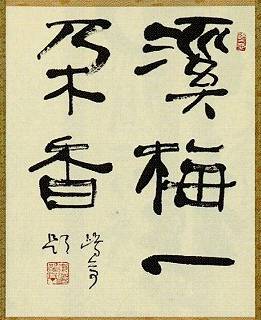 溪梅一
朶香
題